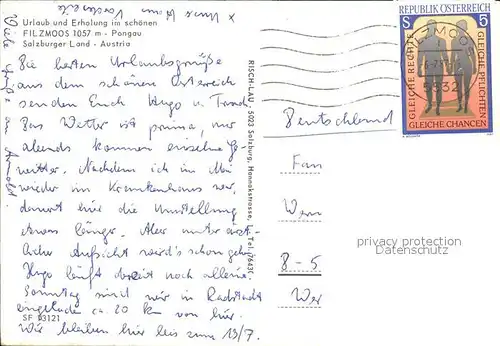 x Unser Haus Vorderseite
Urlaub und Erholung im schönen
FILZMOOS 1057 m - Pongau
Salzburger Land - Austria
Die besten Urlaubsgrüße
aus dem schönen Österreich
senden Euch Hugo u. Trondl
Das Wetter ist prima, nur
abends kommen einzelne Ge-
witter. Nachdem ich im Mai
wieder im Krankenhaus war,
dauert hier die Umstellung
etwas länger. Aber unter ärzt-
licher Aufsicht wird's schon gehen
Hugo läuft derzeit noch allein.
Sonntag sind wir in Radstadt
eingeladen ca. 20 km von hier.
Wir bleiben hier bis zum 19/7.
SF 03121
Viele Grüße an Arnold.
RISCH-LAU, 5023 Salzburg, Hannakstrasse, Tel. 76431
REPUBLIK ÖSTERREICH
S 5
GLEICHE RECHTE
GLEICHE PFLICHTEN
GLEICHE CHANCEN
FILZMOOS
5532
Deutschland
Fam
Wern
8-5
Wer
privacy protection
Datenschutz